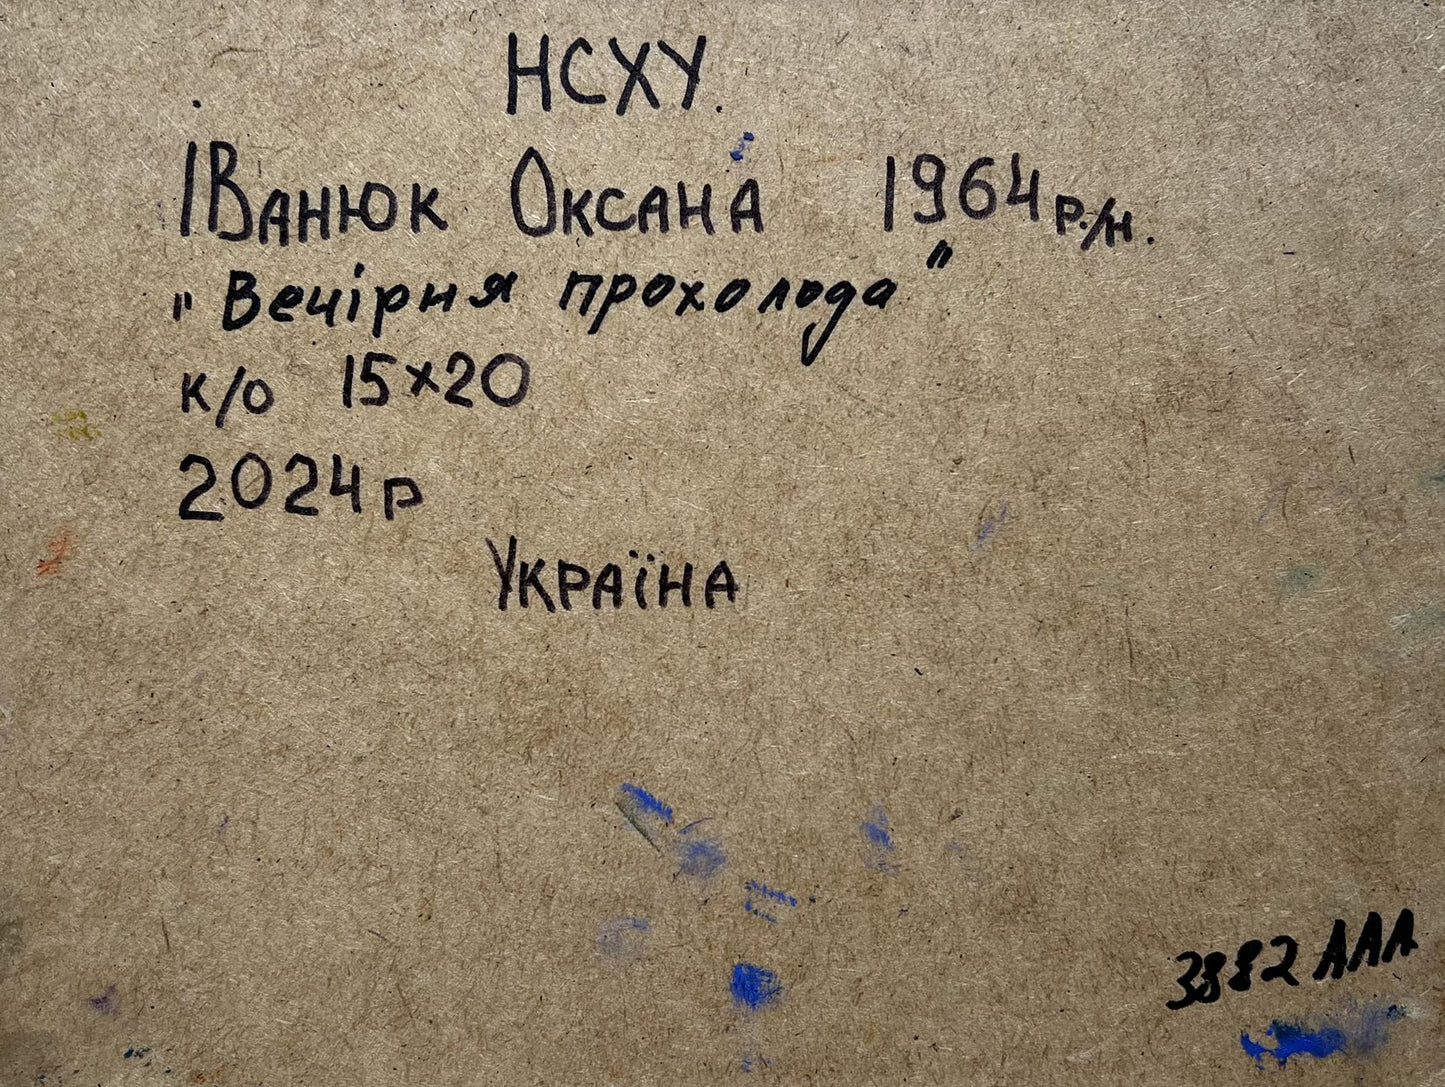 НСХУ.
Іванюк Оксана 1964 р./н.
"Вечірня прохолода"
к/о 15×20
2024 р
Україна
3882 ААА